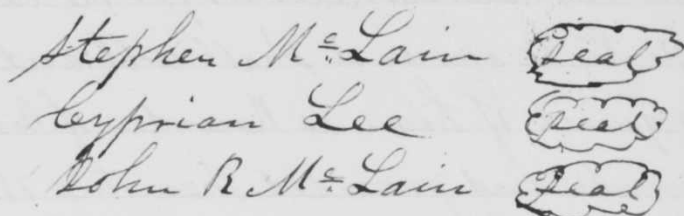 Stephen Mc Lain Seal
Cyprian Lee Seal
John R Mc Lain Seal